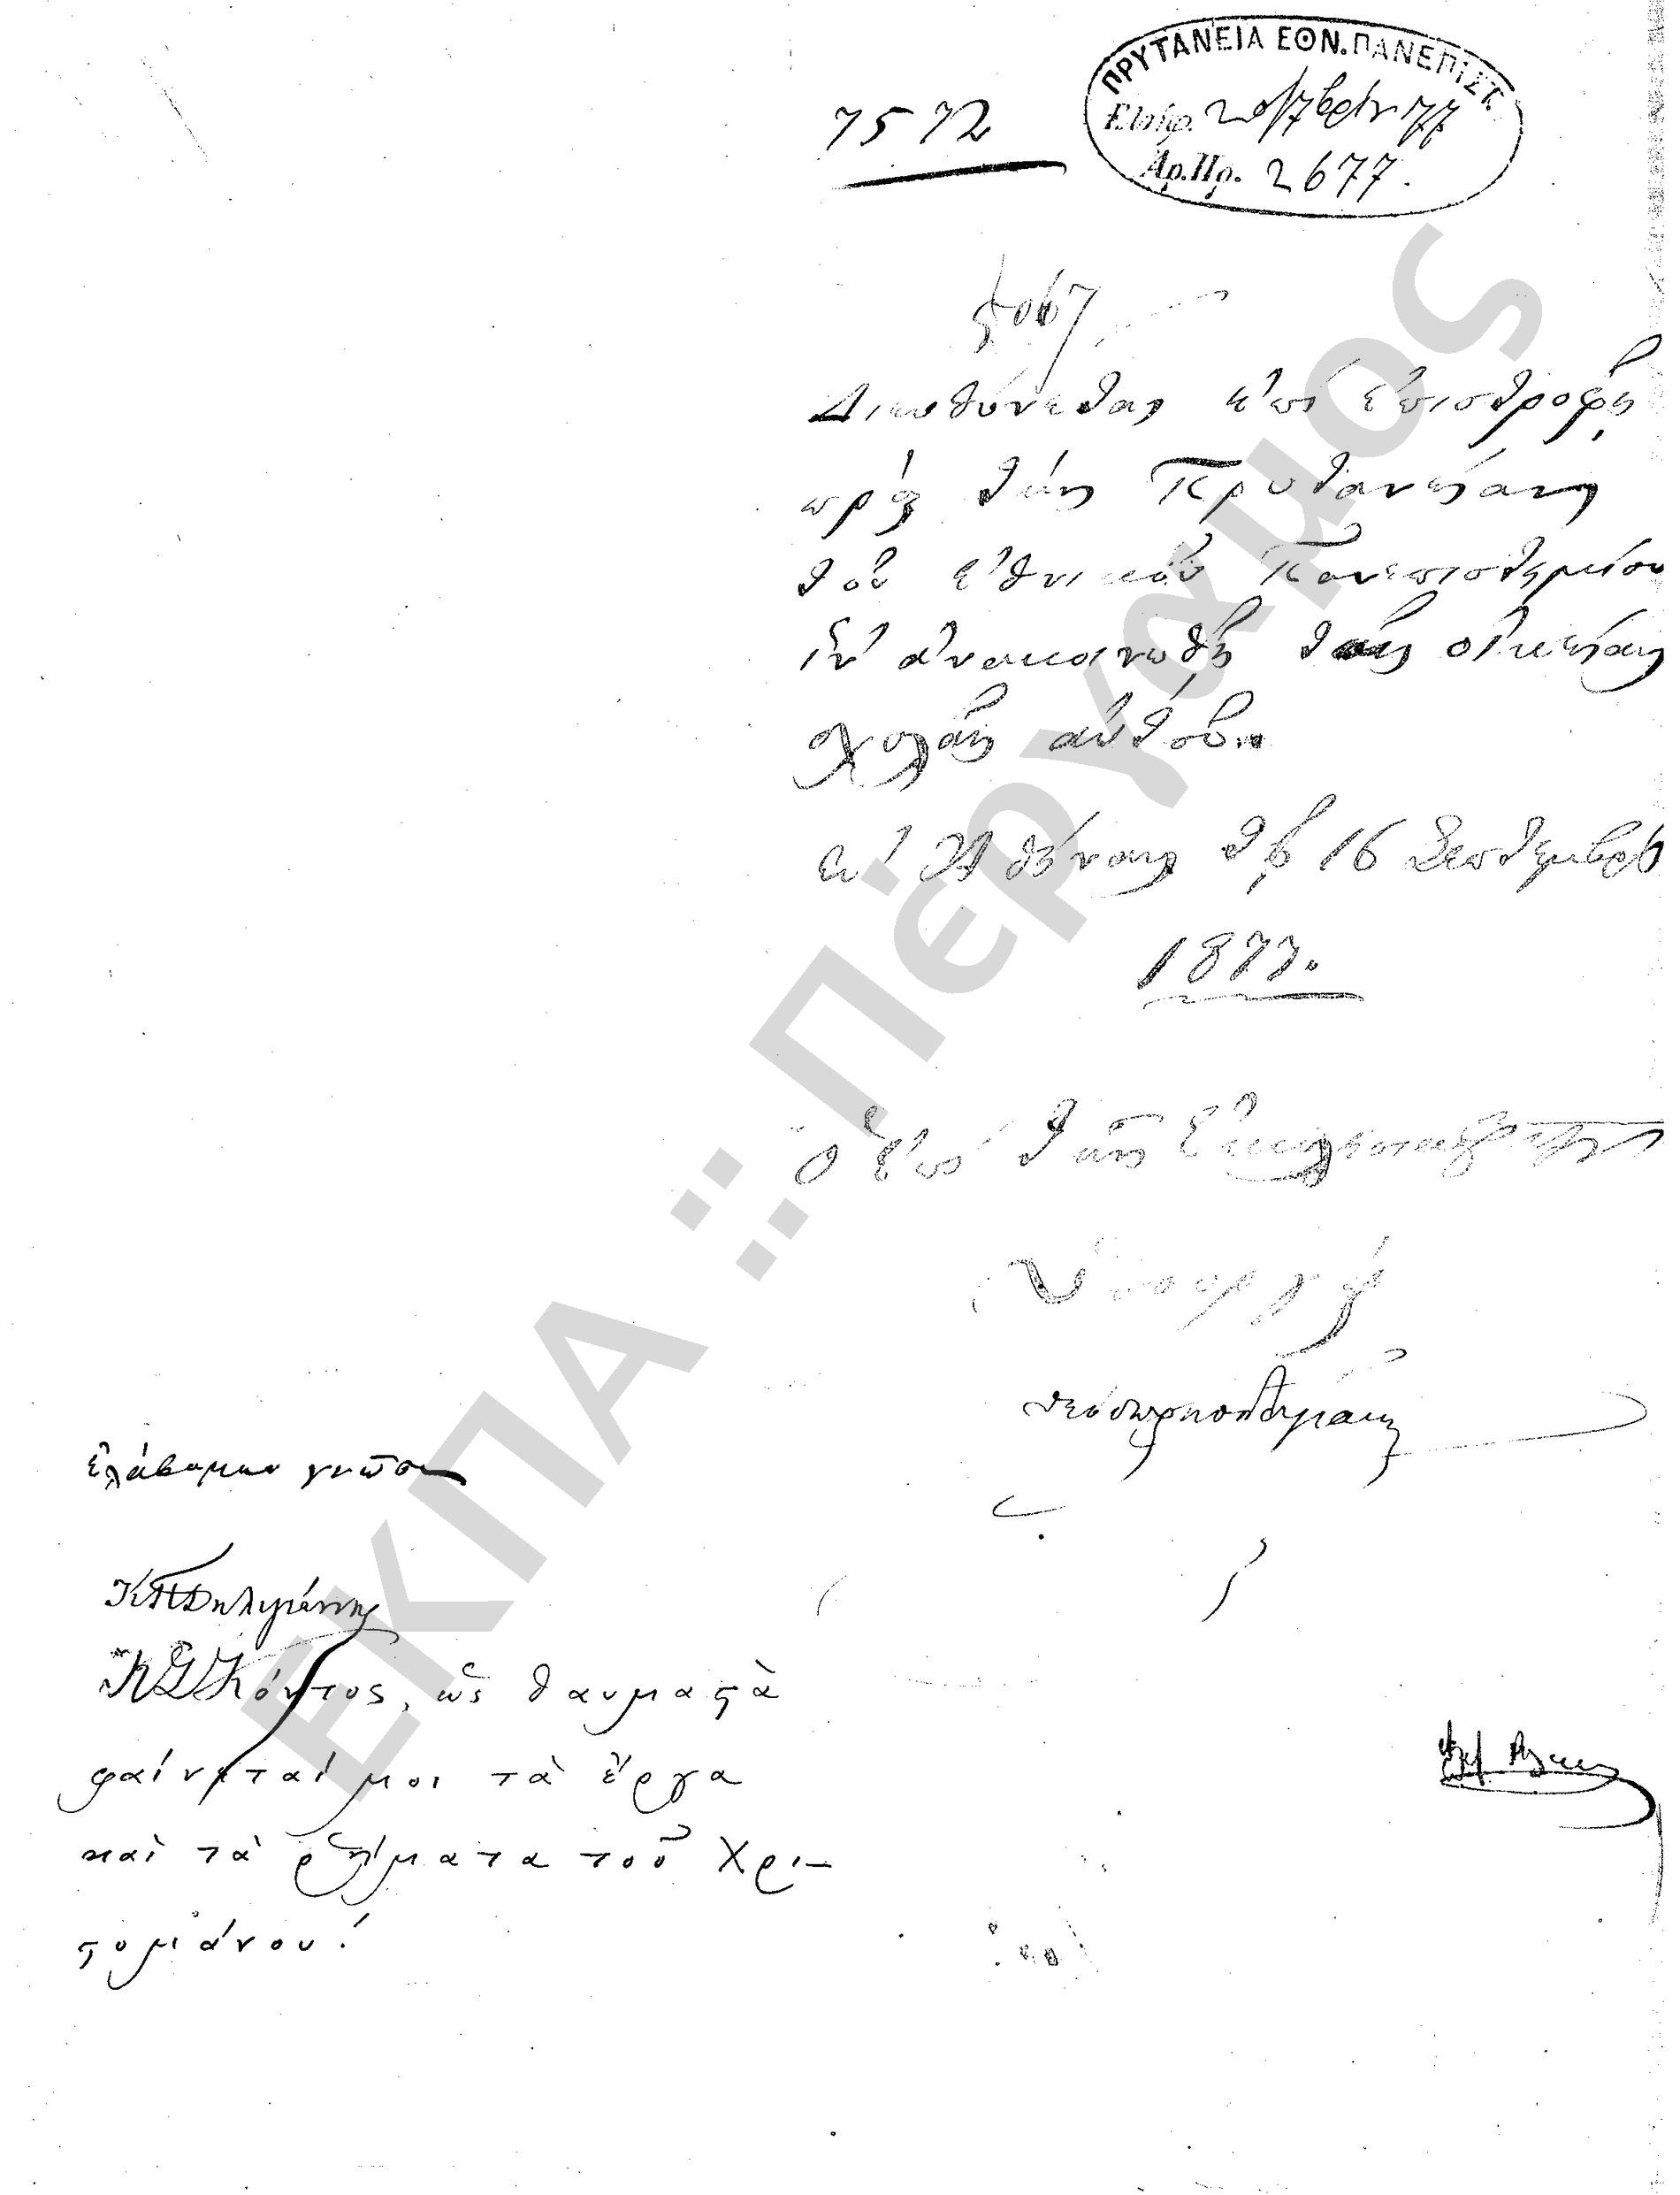 ΠΡΥΤΑΝΕΙΑ ΕΘΝ. ΠΑΝΕΠΙΣΤ.
7572
Ἀρ.Πρ. 2677.
5067
Διευθύνεται ἐπὶ ἐπιστροφῇ
πρὸς τὴν Πρυτανείαν
τοῦ ἐθνικοῦ Πανεπιστημίου
ἵν' ἀνακοινωθῇ οἰκείαν
σχολὴν αὐτοῦ.
ἐν Ἀθήναις τῇ 16 Σεπτεμβρίου
1877.
ὁ ἐπὶ τῶν Ἐκκλησιαστικῶν
Ὑπουργὸς
ἐλάβομεν γνῶσιν
Δηλιγιάννης
ΚΣΚόντος, ὡς θαυμαστὰ
φαίνεταί μοι τὰ ἔργα
καὶ τὰ ῥήματα τοῦ Χρι-
στομάνου!
ΕΚΠΑ :: Πέργαμος